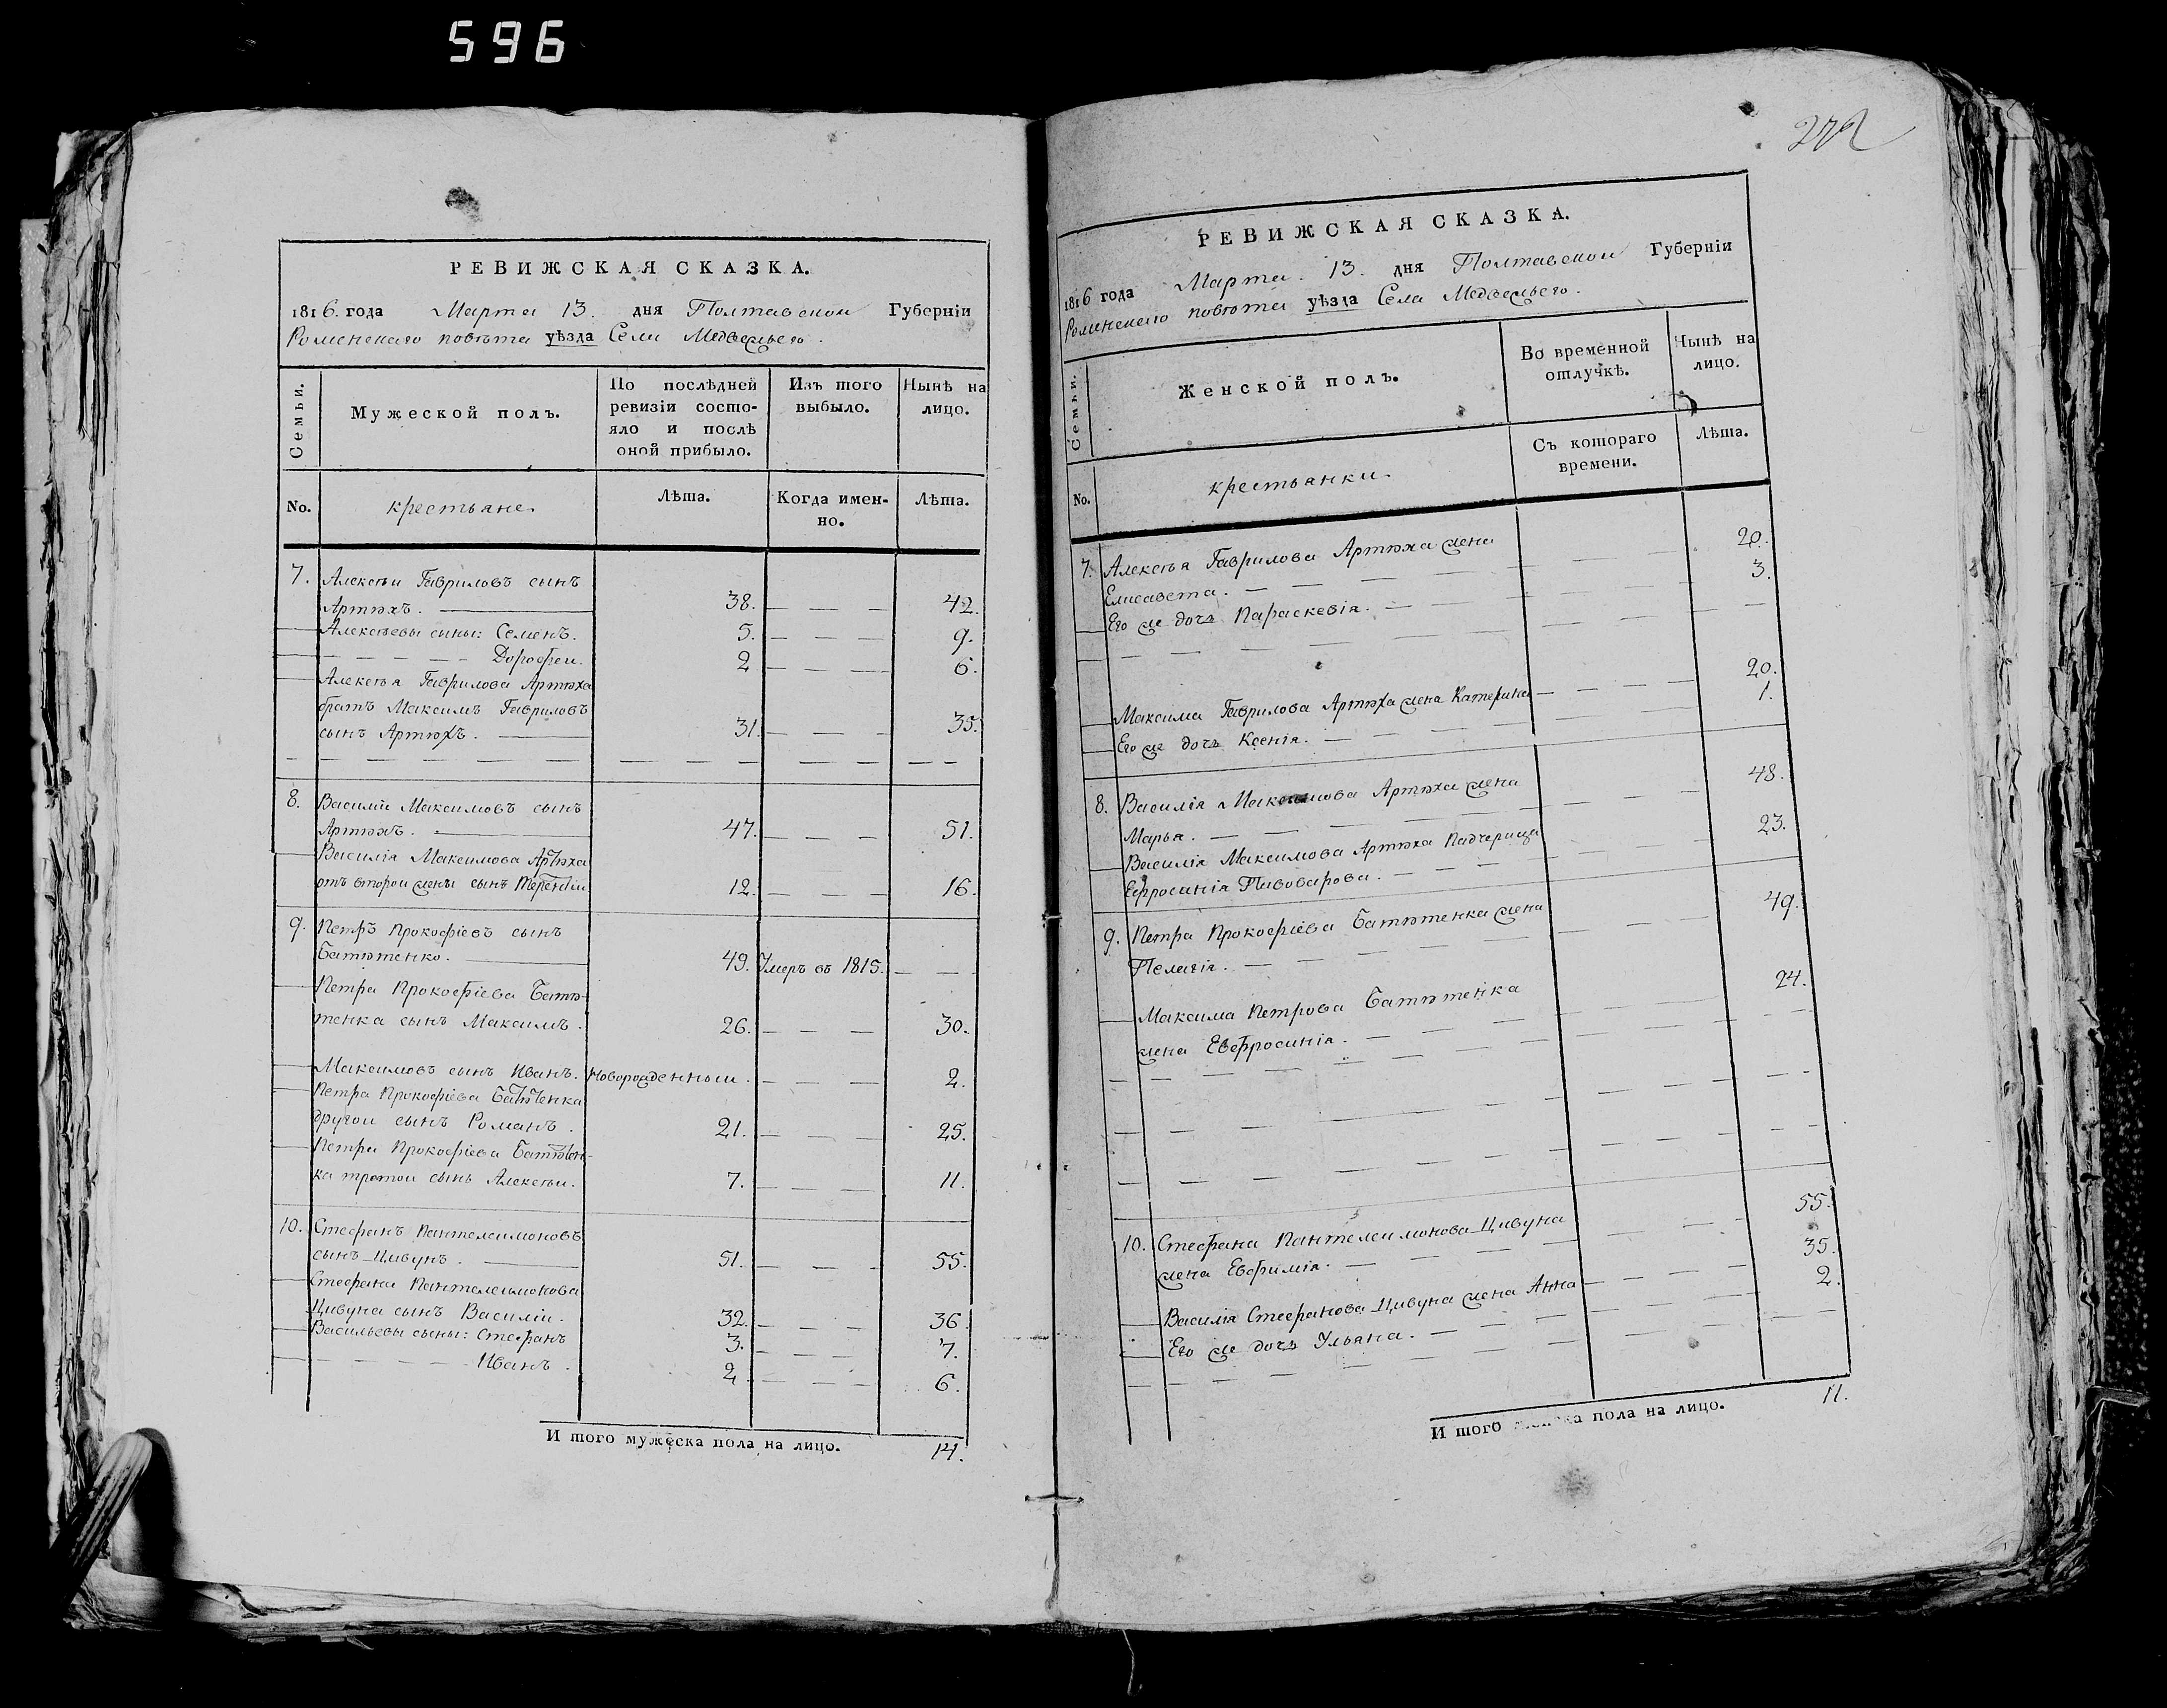 596
РЕВИЖСКАЯ СКАЗКА.
1816. года Марта 13. дня Полтавской Губерніи
Роменскаго повѣта уѣзда Села Медвежьего.
Семьи.
Мужеской полъ.
По послѣдней
ревизіи состо-
яло и послѣ
оной прибыло.
Изъ того
выбыло.
Нынѣ на
лицо.
No. крестьяне. Лѣта. Когда имен-
но. Лѣта.
7. Алексѣи Гавриловъ сынъ
Артюхъ. 38. — — — 42.
Алексѣевы сыны: Семенъ. 5. — — — 9.
— — — — — Дорофеи. 2 — — — 6.
Алексѣя Гаврилова Артюха
братъ Максимъ Гавриловъ
сынъ Артюхъ. 31. — — — 35.
8. Василіи Максимовъ сынъ
Артюхъ. 47. — — — 51.
Василія Максимова Артюха
отъ второи жены сынъ Терентіи 12. — — — 16.
9. Петръ Прокофіевъ сынъ
Батютенко. 49. Умеръ въ 1815. — — —
Петра Прокофіева Батю-
тенка сынъ Максимъ. 26. — — — 30.
Максимовъ сынъ Иванъ. Новорожденныи. — — — 2.
Петра Прокофіева Батютенка
другои сынъ Романъ. 21. — — — 25.
Петра Прокофіева Батютен-
ка третои сынъ Алексѣи. 7. — — — 11.
10. Стефанъ Пантелеимоновъ
сынъ Цивунъ. 51. — — — 55.
Стефана Пантелеимонова
Цивуна сынъ Василіи. 32. — — — 36.
Васильевы сыны: Стефанъ 3. — — — 7.
— — — — — Иванъ. 2. — — — 6.
И того мужеска пола на лицо. 14.
РЕВИЖСКАЯ СКАЗКА.
1816 года Марта 13. дня Полтавской Губерніи
Роменскаго повѣта уѣзда Села Медвежьего.
Семьи.
Женской полъ.
Во временной
отлучкѣ.
Нынѣ на
лицо.
No. крестьянки. Съ котораго
времени. Лѣта.
7. Алексѣя Гаврилова Артюха жена
Елисавета. — — — 20.
Его же дочь Параскевія. — — — 3.
Максима Гаврилова Артюха жена Катерина — — — 20.
Его же дочь Ксенія. — — — 1.
8. Василія Максимова Артюха жена
Марья. — — — 48.
Василія Максимова Артюха Падчерица
Ефросинія Пивоварова. — — — 23.
9. Петра Прокофіева Батютенка жена
Пелагія. — — — 49.
Максима Петрова Батютенка
жена Евфросинія. — — — 24.
10. Стефана Пантелеимонова Цивуна
жена Евфимія. — — — 55.
Василія Стефанова Цивуна жена Анна — — — 35.
Его же дочь Ульяна. — — — 2.
И того женска пола на лицо. 11.